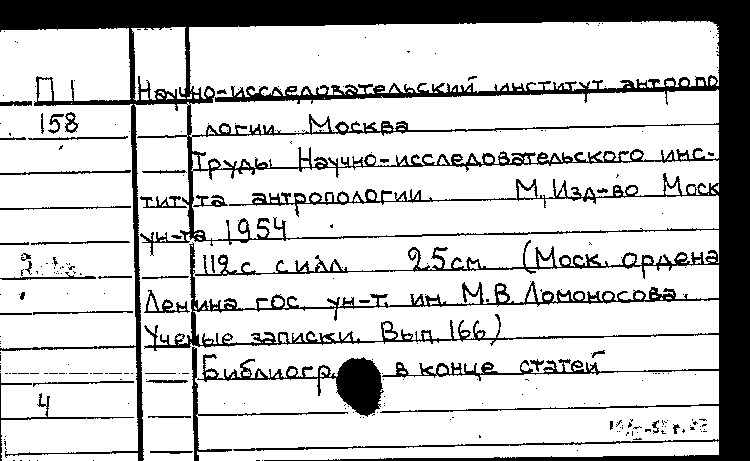 П 1 Научно-исследовательский институт антропо
158 логии. Москва
Труды Научно-исследовательского инс-
титута антропологии. М., Изд-во Моск
ун-та, 1954
112 с с илл. 25 см. (Моск. ордена
Ленина гос. ун-т. им. М.В. Ломоносова.
Ученые записки. Вып. 166)
Библиогр. в конце статей
4